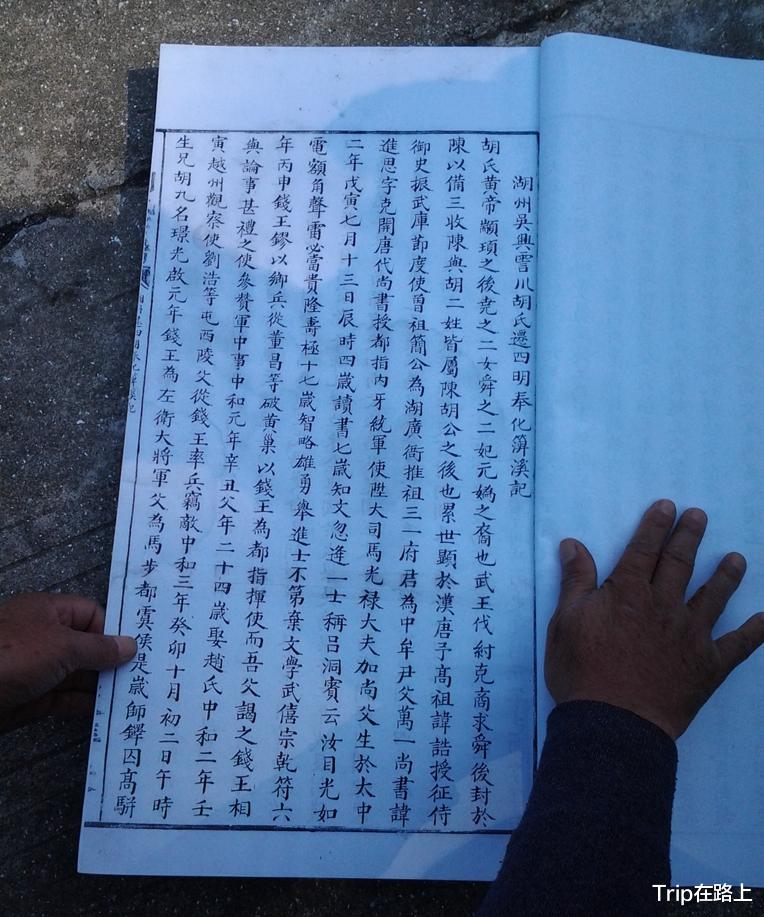 湖州吳興霅川胡氏遷四明奉化簰溪記
胡氏黃帝顓頊之後堯之二女舜之二妃元媯之裔也武王伐紂克商求舜後封於
陳以備三收陳與胡二姓皆屬陳胡公之後也累世顯於漢唐予髙祖諱誥授征侍
御史振武庫節度使曽祖簡公為湖廣衙推祖三一府君為中牟尹父萬一尚書諱
進思字克開唐代尚書授都指内牙統軍使陞大司馬光禄大夫加尚父生於太中
二年戊寅七月十三日辰時四歲讀書七歲知文忽逢一士稱吕洞賓云汝目光如
電額角聲雷必當貴隆壽極十七歲智略雄勇舉進士不第棄文學武僖宗乾符六
年丙申錢王鏐以鄉兵從董昌等破黃巢以錢王為都指揮使而吾父謁之錢王相
與論事甚禮之使參贊軍中事中和元年辛丑父年二十四歲娶趙氏中和二年壬
寅越州觀察使劉浩等屯西陵父從錢王率兵竊敵中和三年癸卯十月初二日午時
生兄胡九名璟光啟元年錢王為左衛大將軍父為馬步都虞侯是歲師鐸因髙駢
Trip在路上